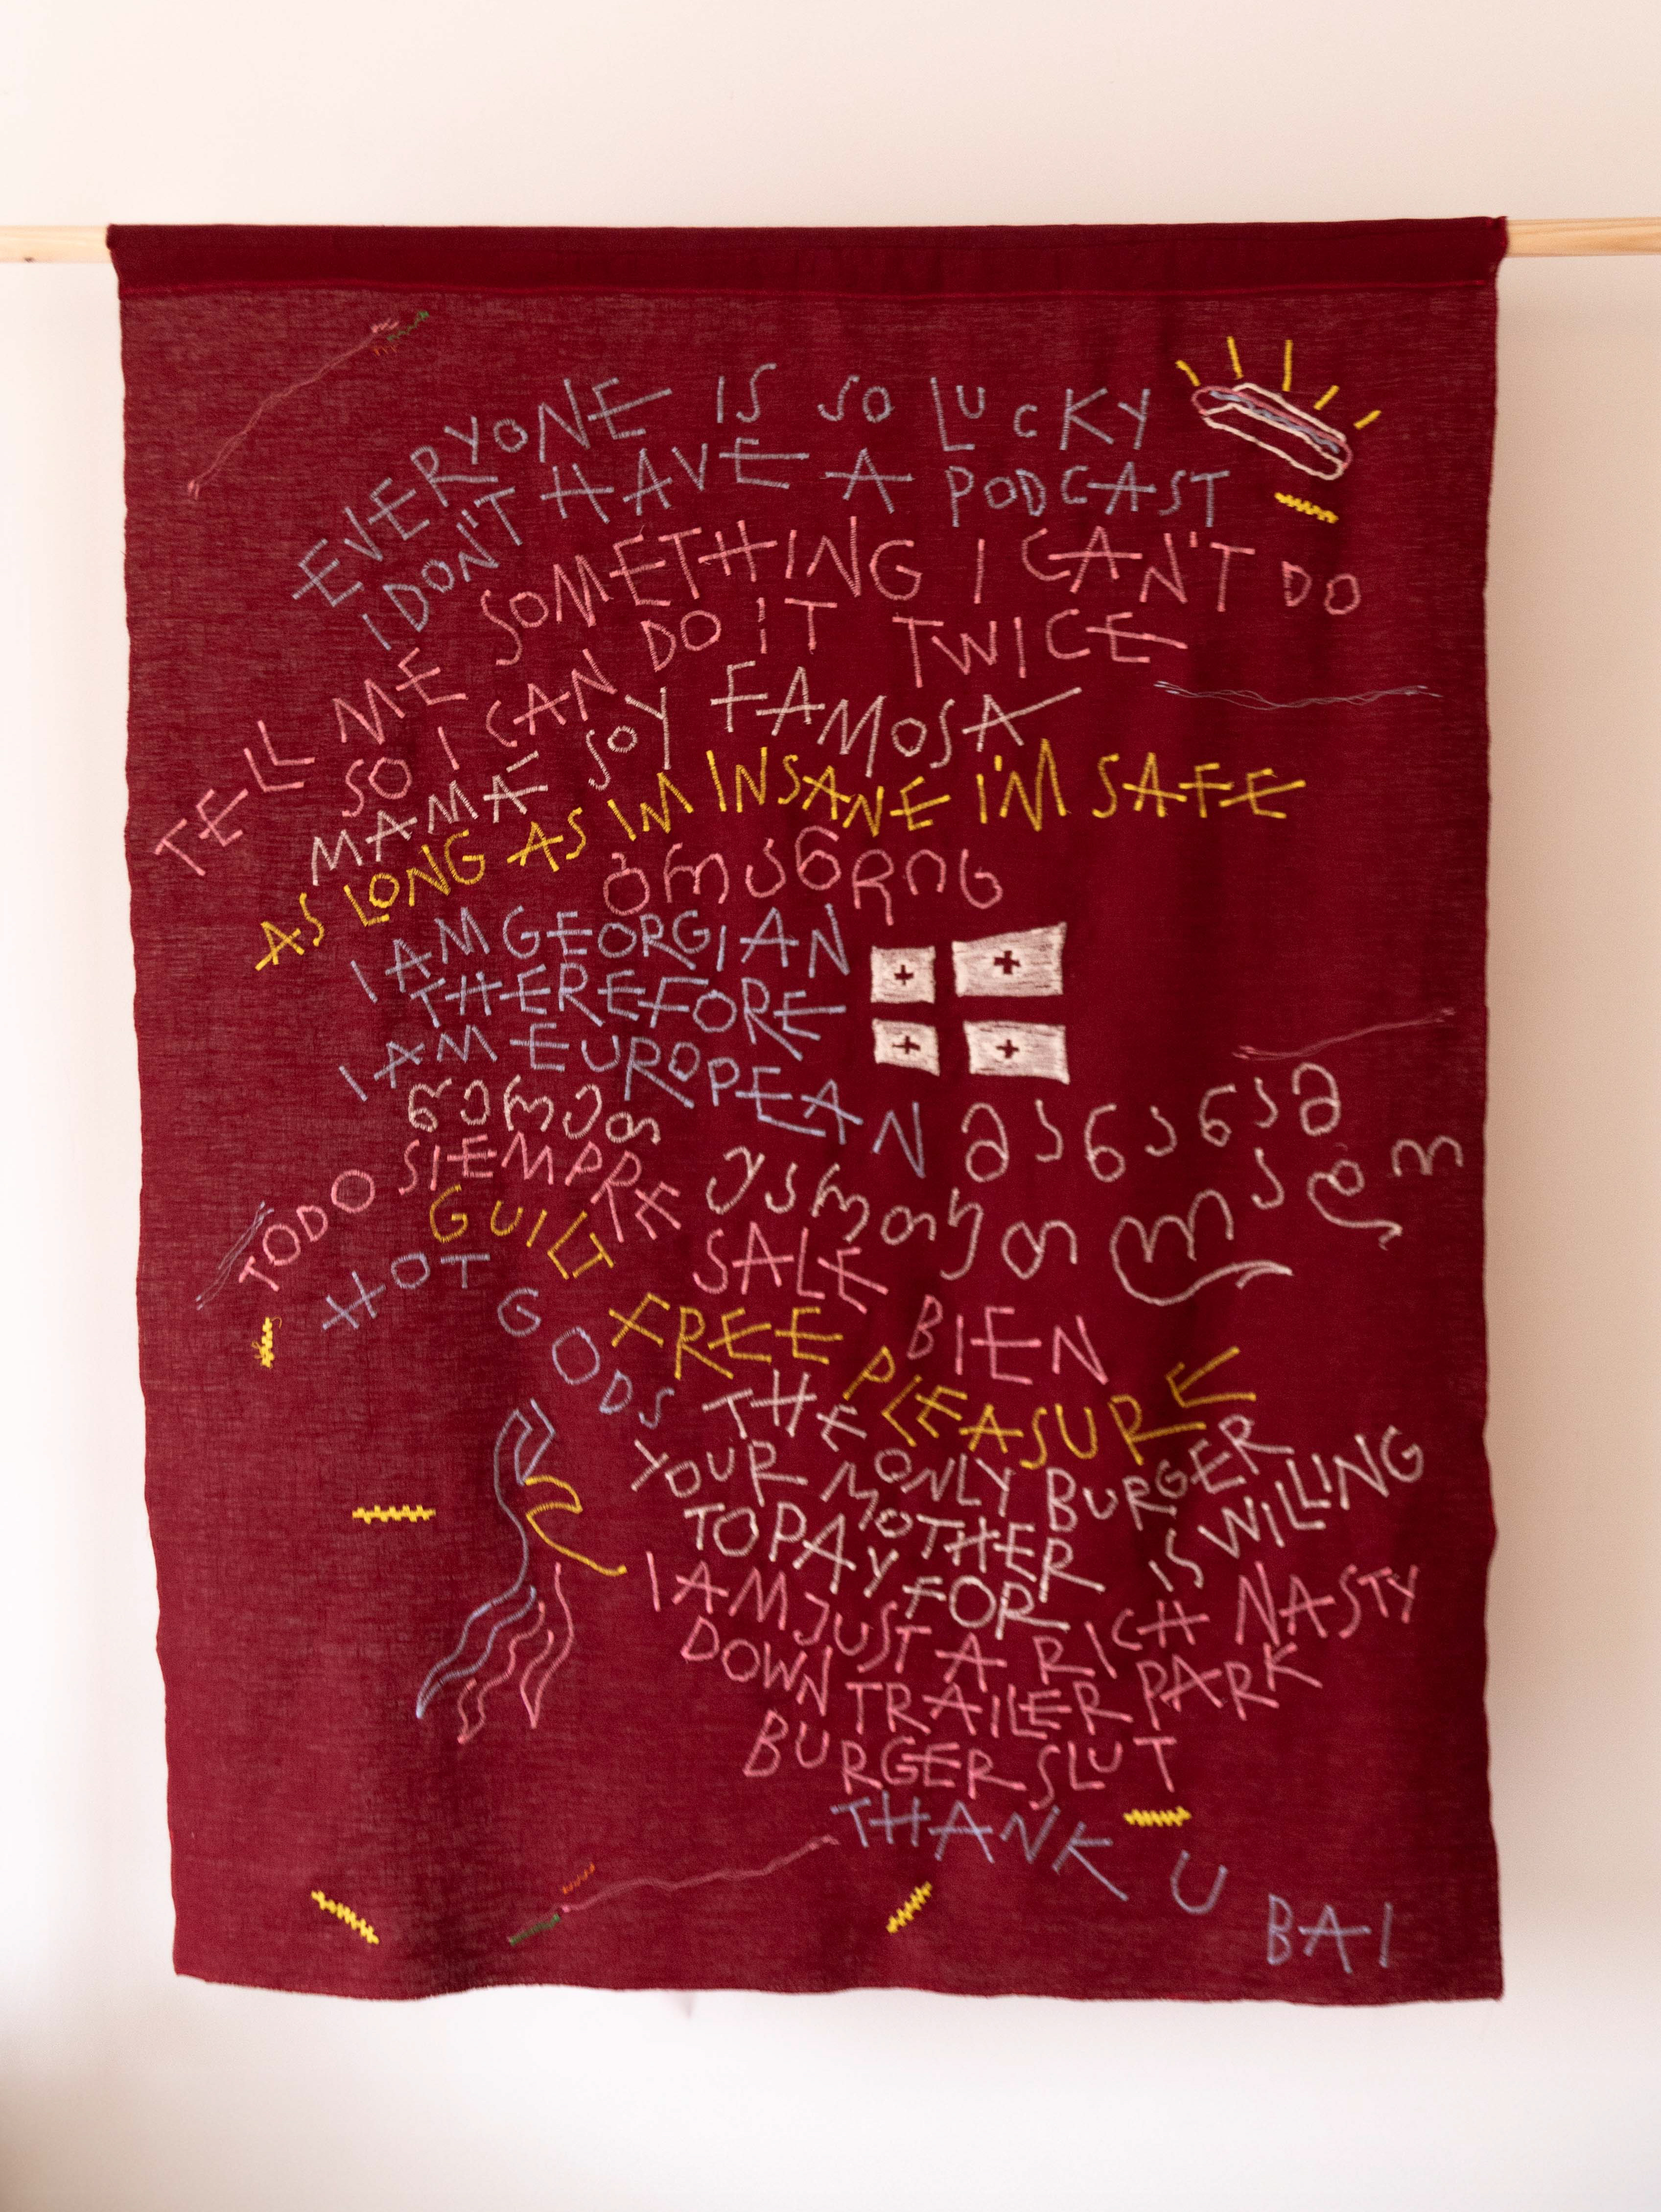 EVERYONE IS SO LUCKY
I DON'T HAVE A PODCAST
TELL ME SOMETHING I CAN'T DO
SO I CAN DO IT TWICE
MAMÁ SOY FAMOSA
AS LONG AS IM INSANE I'M SAFE
I AM GEORGIAN
THEREFORE
I AM EUROPEAN
მანანამ
TODO SIEMPRE SALE BIEN
GUILT FREE PLEASURE
HOT GODS
THE ONLY BURGER
YOUR MOTHER IS WILLING
TO PAY FOR
I AM JUST A RICH NASTY
DOWN TRAILER PARK
BURGER SLUT
THANK U
BAI